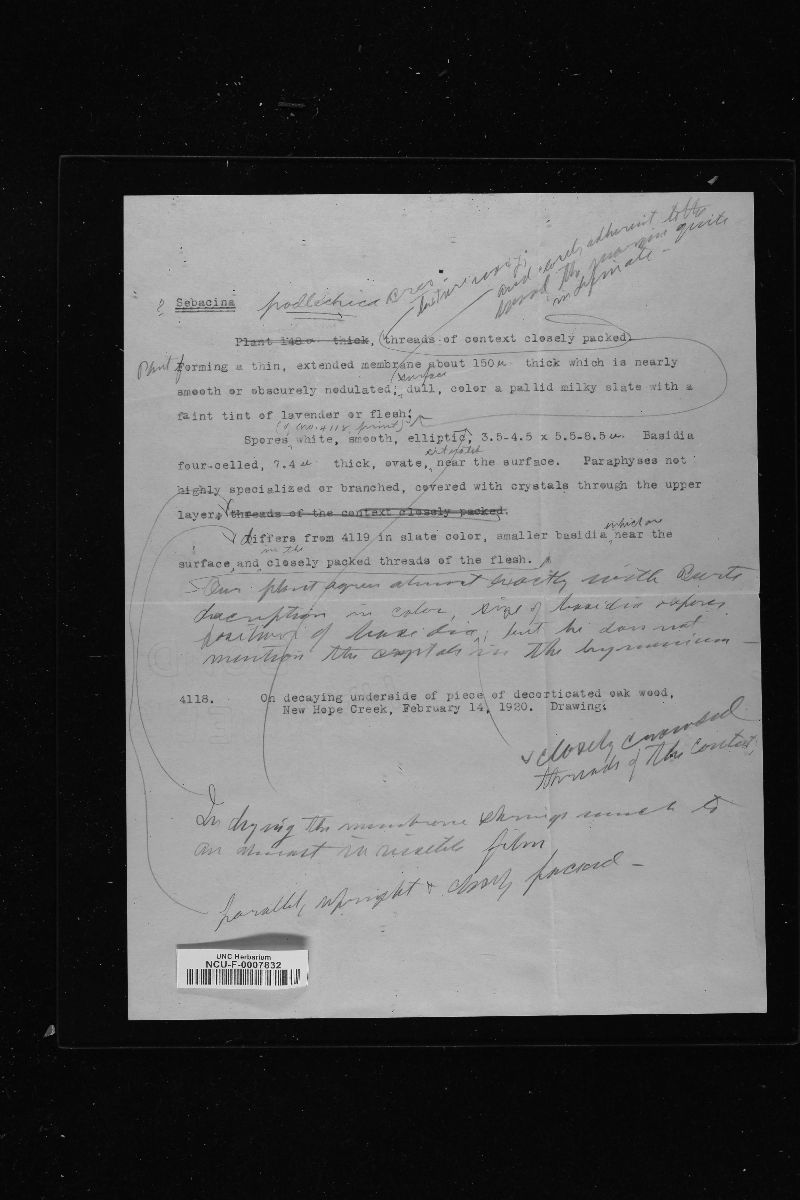 and closely adherent to the
wood, the margin quite
indefinate -
? Sebacina podlachica Bres.
Plant 148 µ thick, (threads of context closely packed)
Plant forming a thin, extended membrane about 150 µ thick which is nearly
surface
smooth or obscurely nodulated; dull, color a pallid milky slate with a
faint tint of lavender or flesh;
(of No. 4118, print)
Spores white, smooth, elliptic, 3.5-4.5 x 5.5-8.5 µ. Basidia
four-celled, 7.4 µ thick, ovate, near the surface. Paraphyses not
highly specialized or branched, covered with crystals through the upper
layer, threads of the context closely packed.
which are
differs from 4119 in slate color, smaller basidia near the
in the
surface, and closely packed threads of the flesh.
Our plant agrees almost exactly with Burt's
description in color, size of basidia spores
position of basidia, but he does not
mention the crystals in the hymenium -
4118. On decaying underside of piece of decorticated oak wood,
New Hope Creek, February 14, 1920. Drawing.
closely crowded
threads of the context.
In drying the membrane shrinks much to
an almost invisible film
parallel, upright & closely packed -
UNC Herbarium
NCU-F-0007832